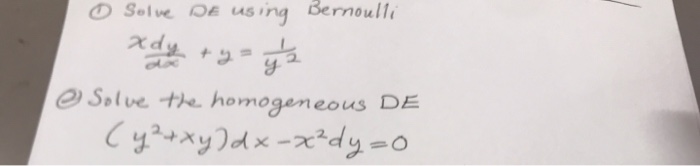 ① Solve DE using Bernoulli
x dy/dx + y = 1/y²
② Solve the homogeneous DE
(y²+xy)dx - x²dy = 0